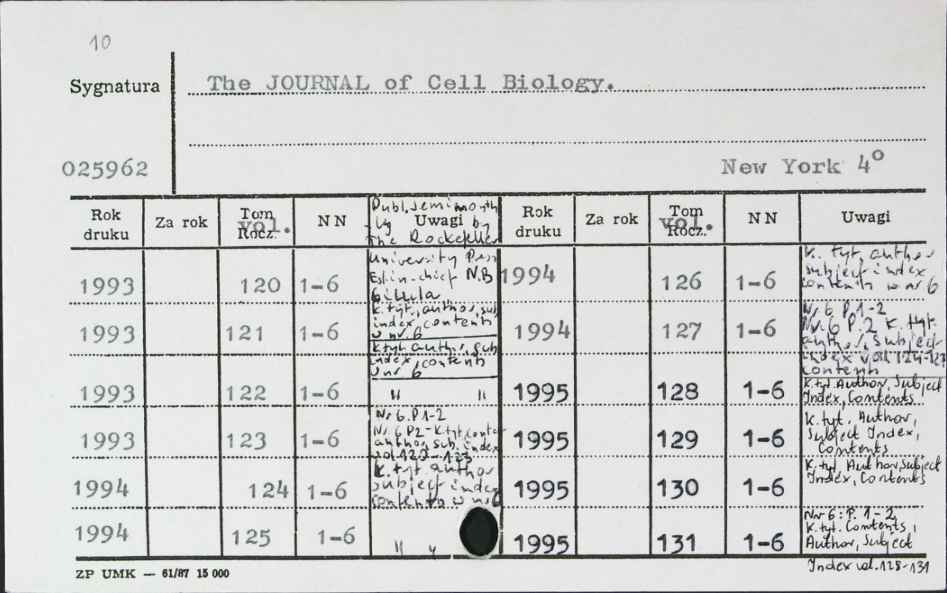 10
Sygnatura
The JOURNAL of Cell Biology.
025962
New York 4°
Rok druku Za rok Tom vol. Rocz. NN Uwagi Rok druku Za rok Tom vol. Rocz. NN Uwagi
Publ. semimonthly by
The Rockefeller
University Press
N.B
1993 120 1-6
k. tyt, author, sub.
index, contents
w nr. 6
1993 121 1-6
k. tyt. auth., sub
index, contents
w nr 6
1993 122 1-6 " "
Nr 6. P.1-2
Nr. 6 P2 - k. tyt, conten
author, sub. index
vol 120-123
1993 123 1-6
k. tyt author
subject index
contents w nr 6
1994 124 1-6
1994 125 1-6 " "
k. tyt, author
subject index
contents w nr 6
1994 126 1-6
Nr 6 P.1-2
Nr. 6 P.2 k. tyt.
author, subject
index vol 124-127
contents
1994 127 1-6
1995 128 1-6
k. tyt Author, Subject
Index, Contents.
1995 129 1-6
k. tyt. Author,
Subject Index,
Contents
1995 130 1-6
k. tyt, Author, subject
Index, Contents
1995 131 1-6
Nr 6: P. 1-2
k. tyt. Contents,
Author, Subject
Index vol. 128-131
ZP UMK — 61/87 15 000